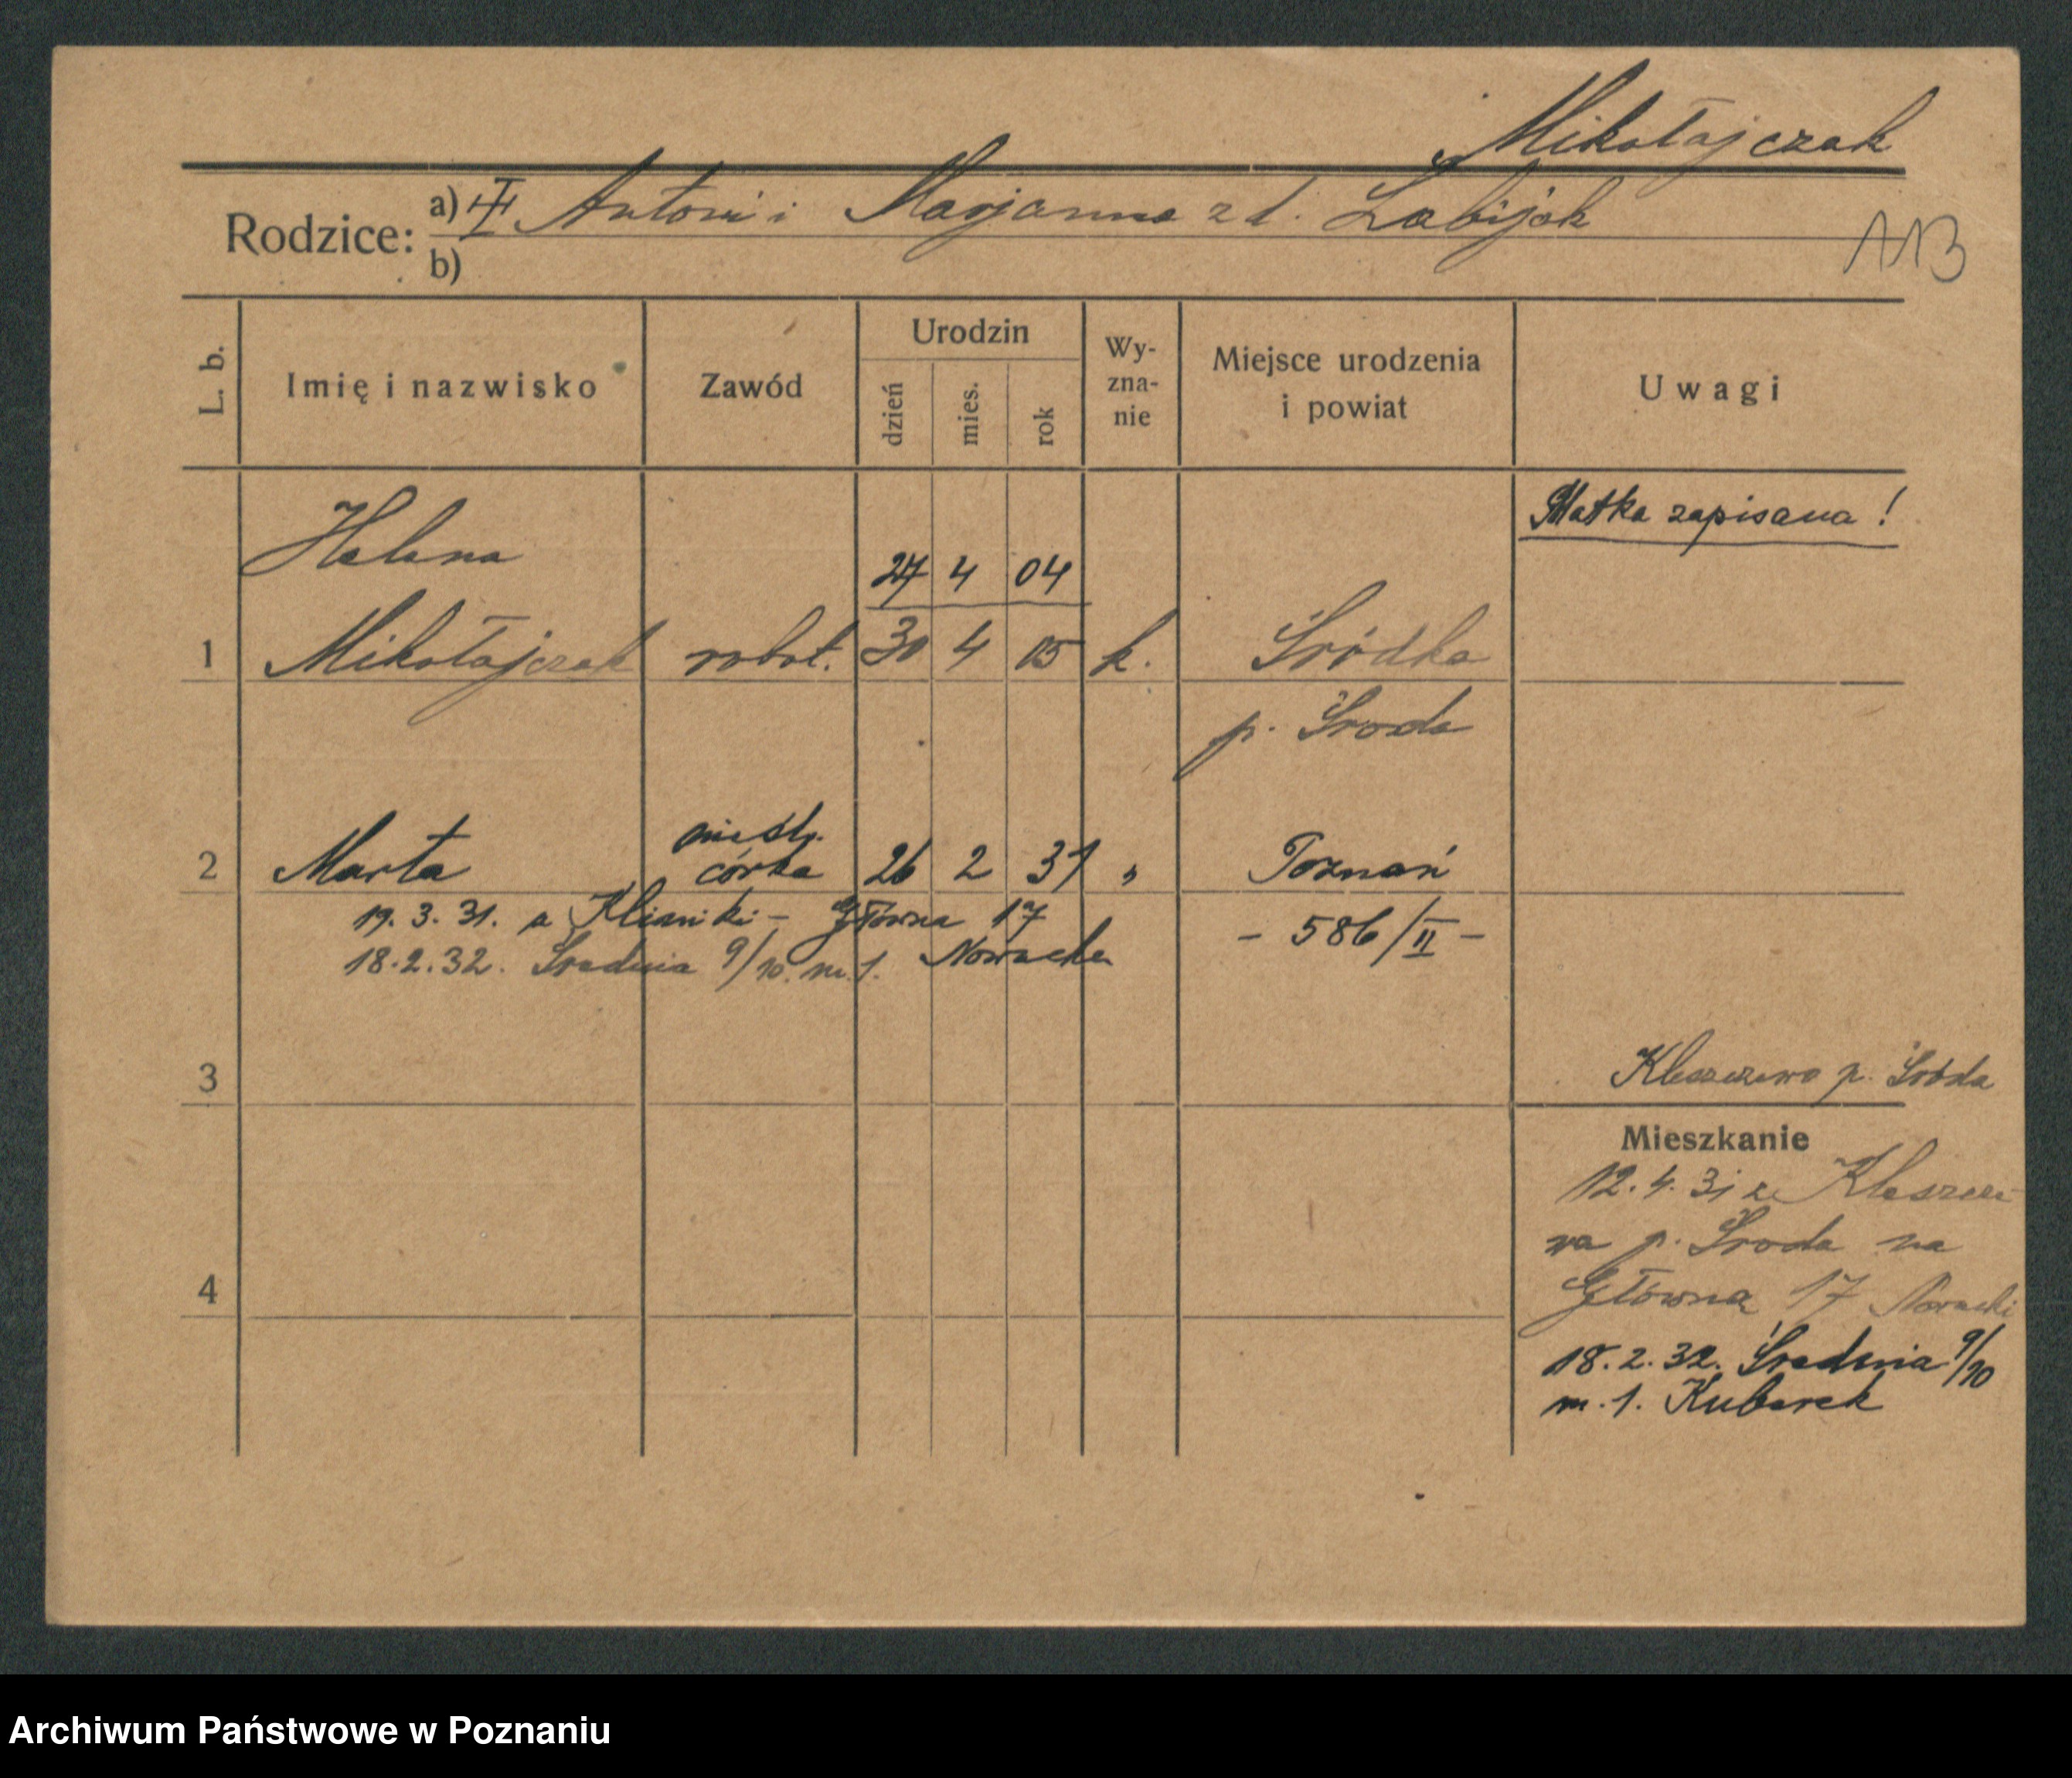 Mikołajczak
Rodzice: a) Antoni i Marjanna z d. Łabijak
b)
113
L. b.
Imię i nazwisko
Zawód
Urodzin
dzień
mies.
rok
Wy-
zna-
nie
Miejsce urodzenia
i powiat
Uwagi
Matka zapisana!
Helena
27 4 04
1 Mikołajczak robot. 30 4 05 k. Śródka
p. Środa
nieśl.
2 Marta córka 26 2 31 " Poznań
19. 3. 31. z Kliniki - Główna 17
- 586/II -
18.2.32. Średnia 9/10. m. 1. Nowacka
3
Kleszczewo p. Środa
Mieszkanie
12. 4. 31 z Kleszcze-
wa p. Środa na
4
Główna 17 Nowacki
18. 2. 32. Średnia 9/10
m. 1. Kubarek
Archiwum Państwowe w Poznaniu